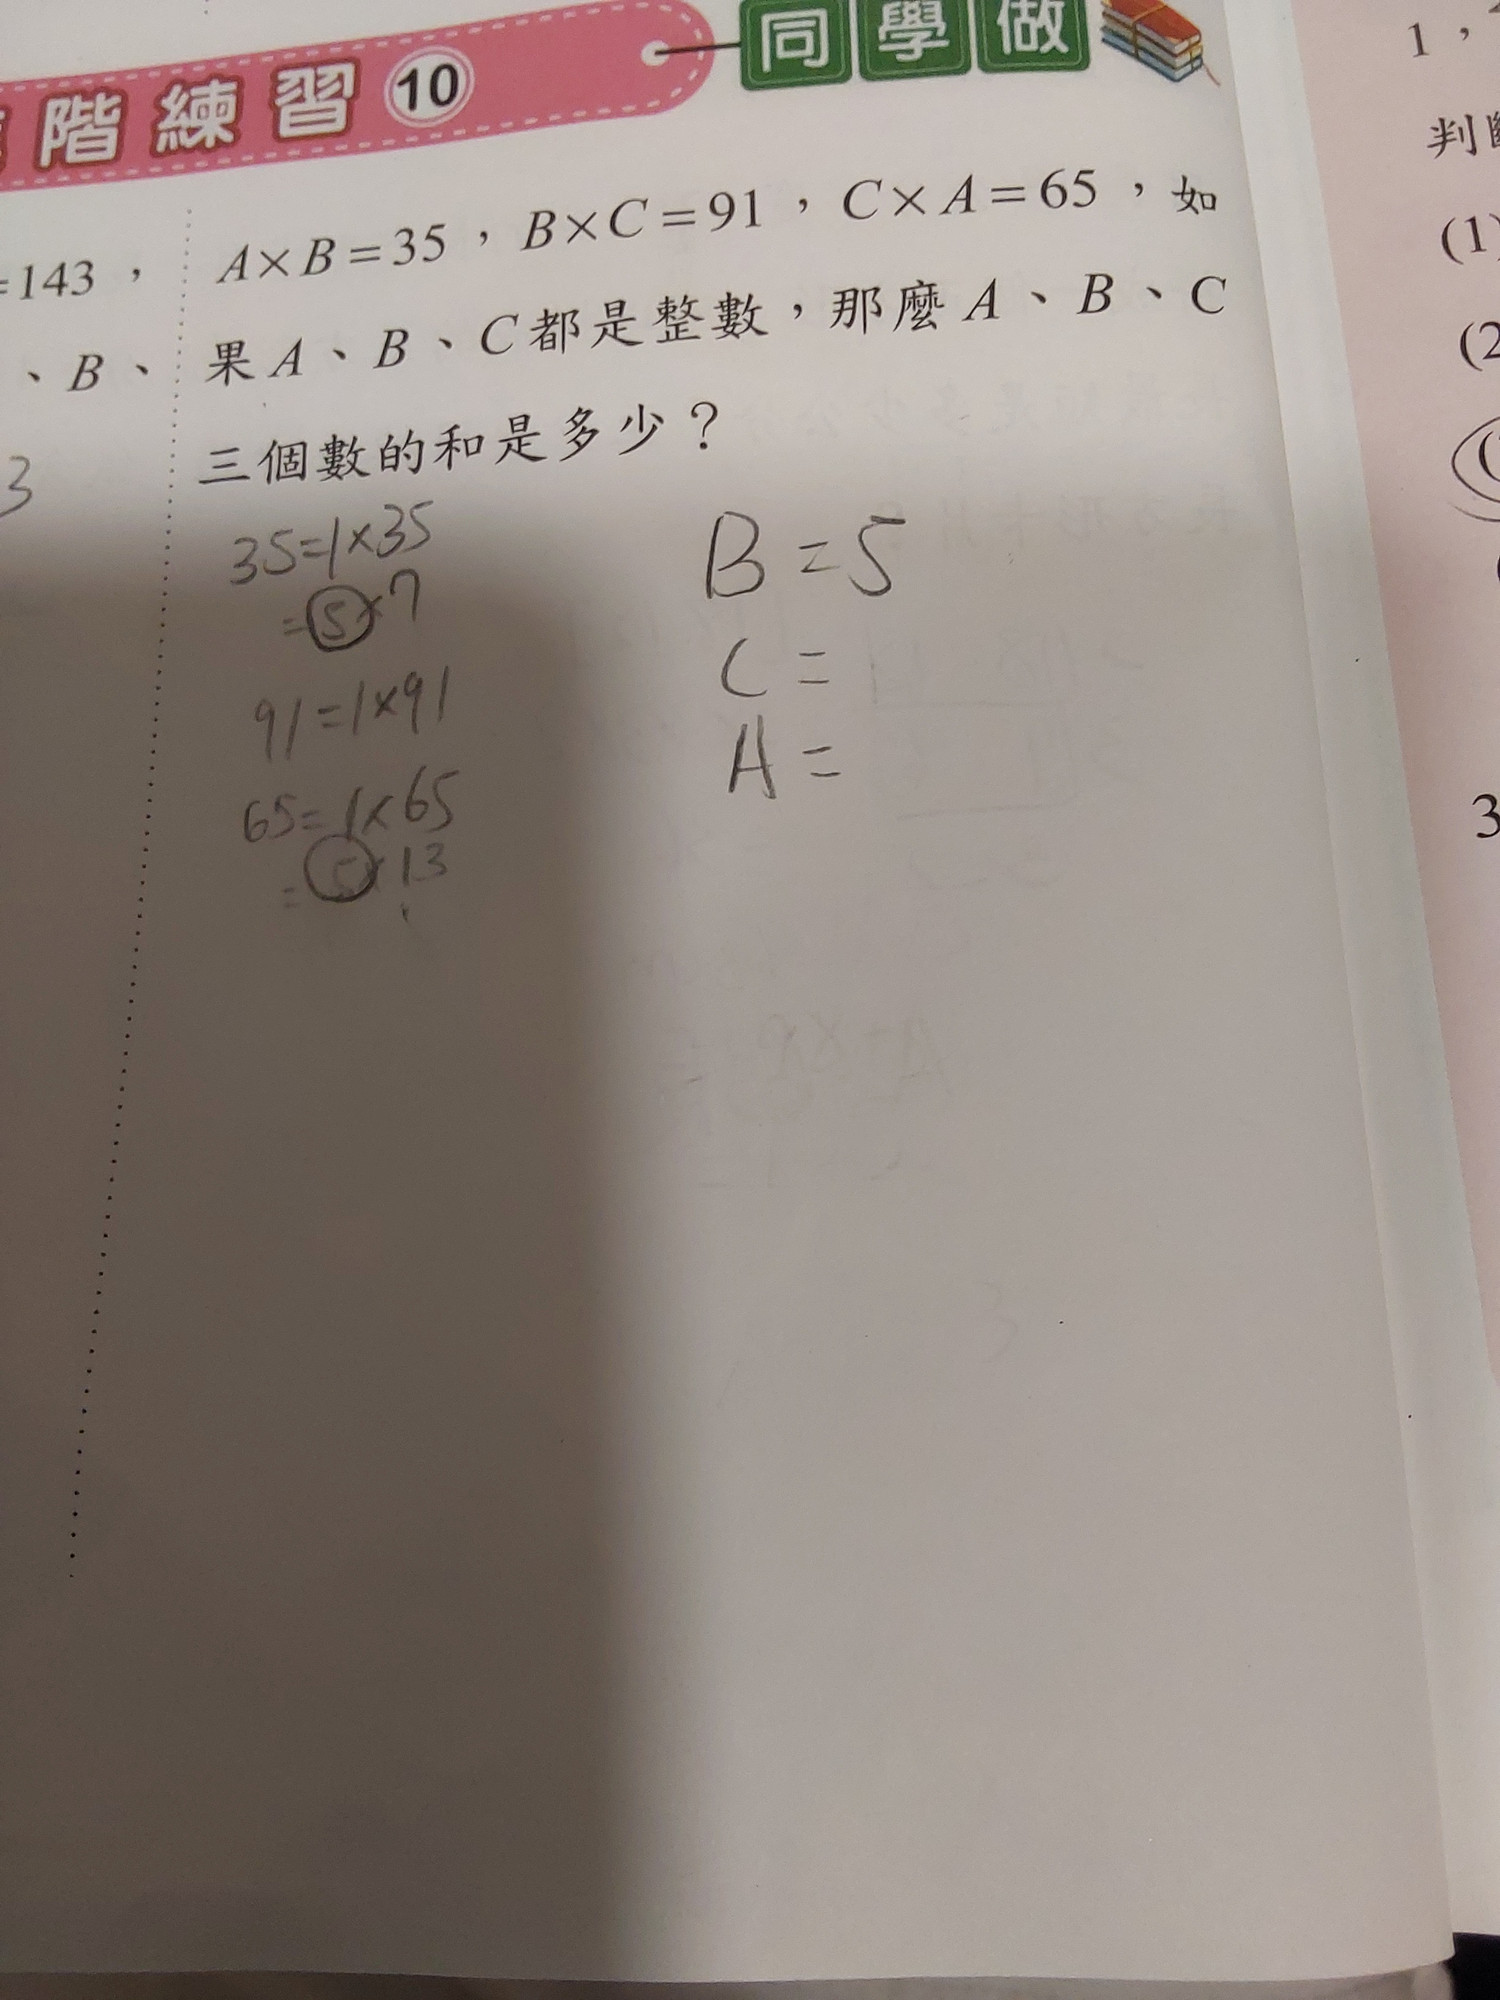 階練習 10 同學做
=143，
、B、
3
A×B=35，B×C=91，C×A=65，如
果A、B、C都是整數，那麼A、B、C
三個數的和是多少？
35=1×35
=5×7
91=1×91
65=1×65
=5×13
B=5
C=
A=
1，
(1)
(2
3